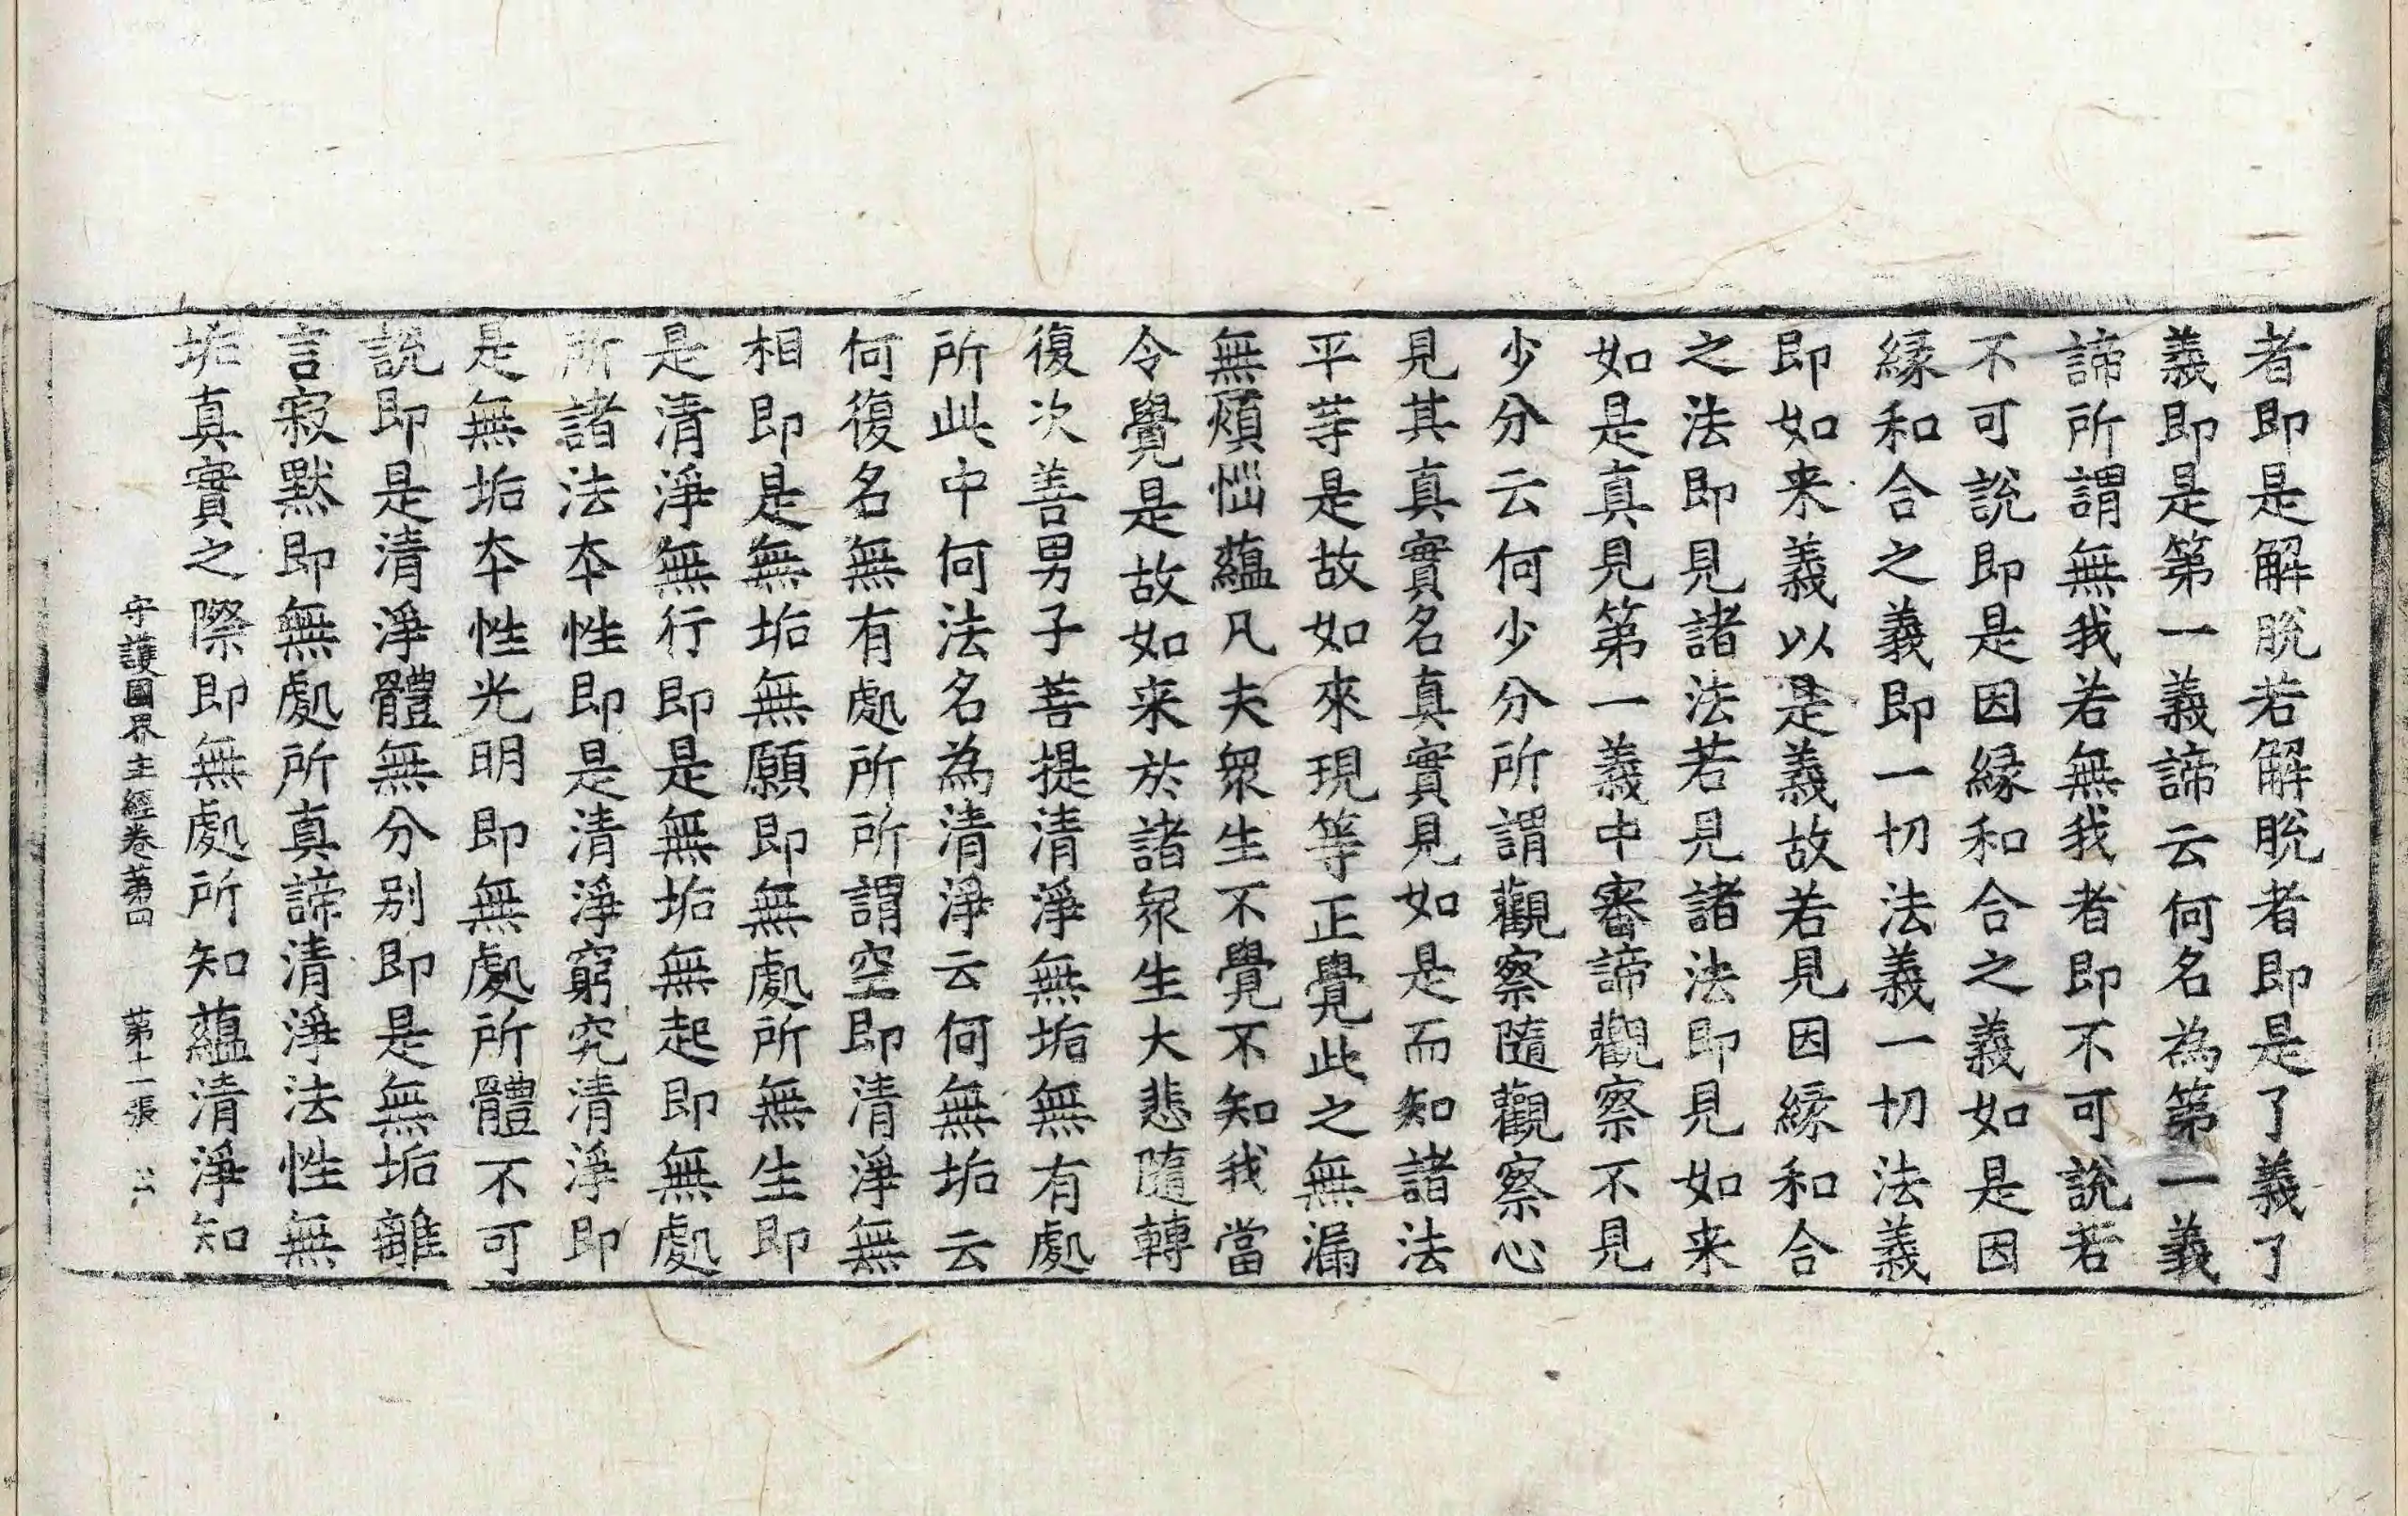 者即是解脫若解脫者即是了義了
義即是第一義諦云何名為第一義
諦所謂無我若無我者即不可說若
不可說即是因緣和合之義如是因
緣和合之義即一切法義一切法義
即如来義以是義故若見因緣和合
之法即見諸法若見諸法即見如来
如是真見第一義中審諦觀察不見
少分云何少分所謂觀察隨觀察心
見其真實名真實見如是而知諸法
平等是故如來現等正覺此之無漏
無煩惱蘊凡夫眾生不覺不知我當
令覺是故如来於諸眾生大悲隨轉
復次善男子菩提清淨無垢無有處
所此中何法名為清淨云何無垢云
何復名無有處所所謂空即清淨無
相即是無垢無願即無處所無生即
是清淨無行即是無垢無起即無處
所諸法本性即是清淨窮究清淨即
是無垢本性光明即無處所體不可
說即是清淨體無分別即是無垢離
言寂默即無處所真諦清淨法性無
垢真實之際即無處所知蘊清淨知
守護國界主經卷第四 第十一張